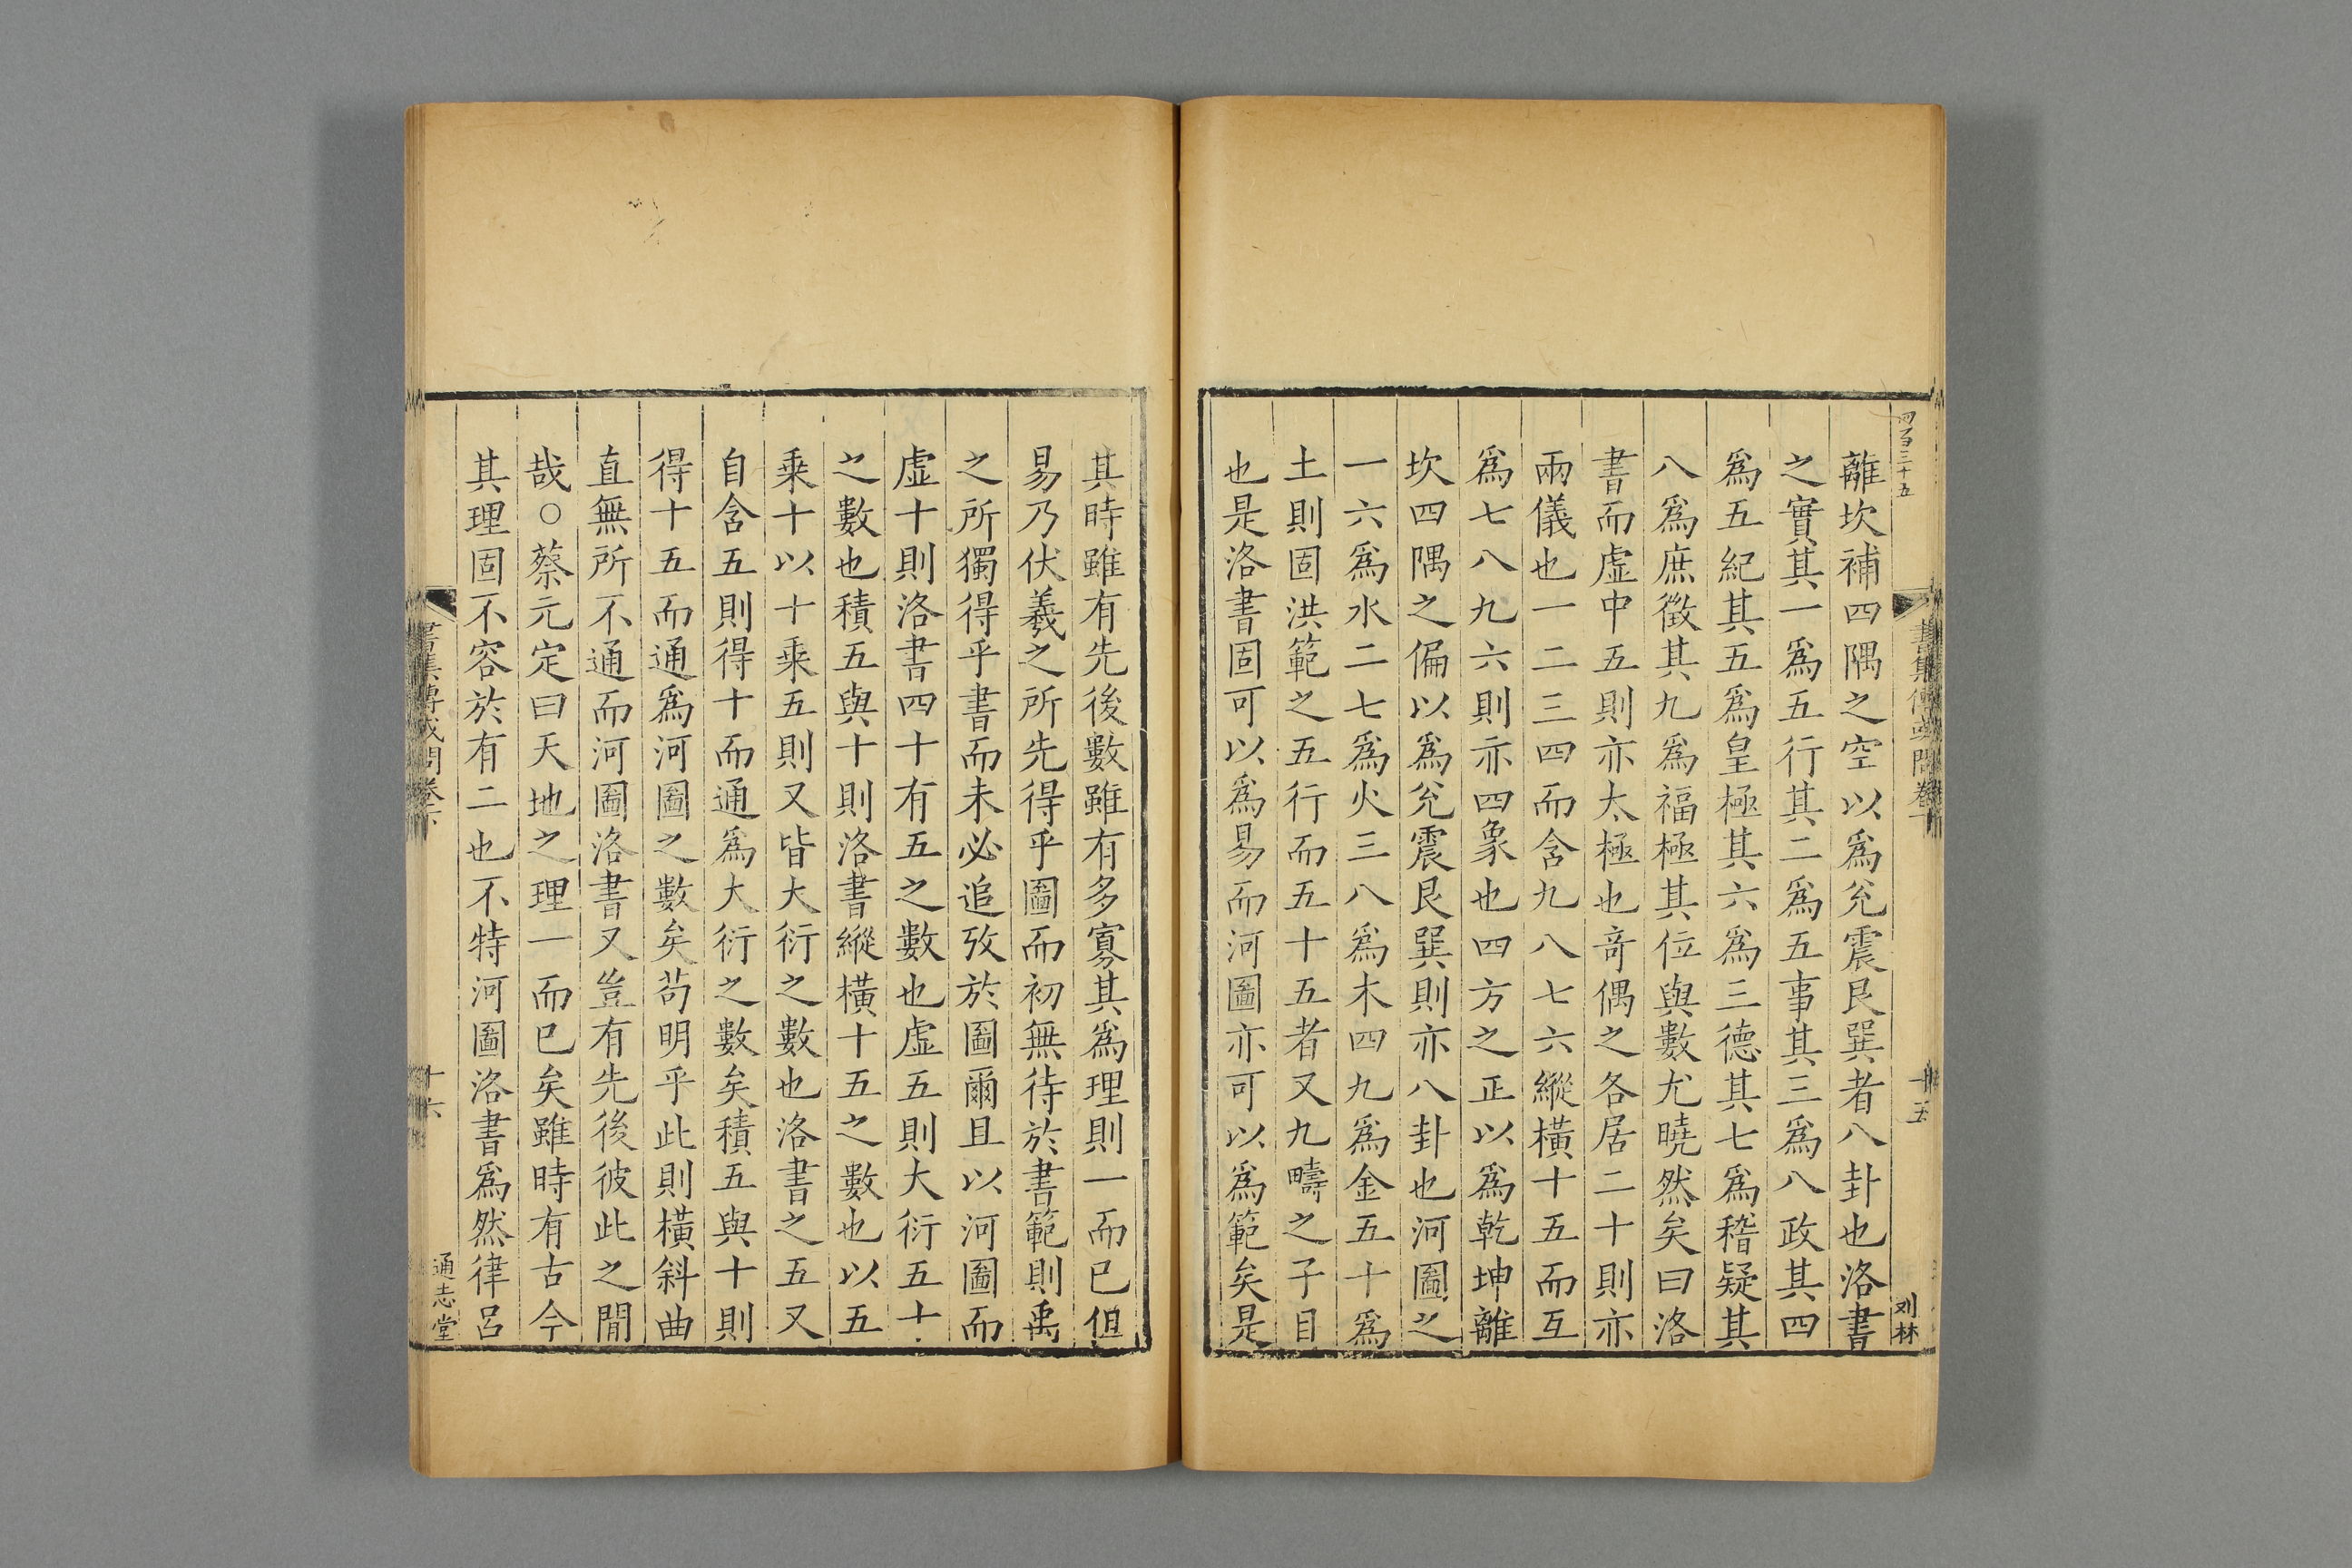 四百三十五
書集傳或問卷下
十五
刘林
離坎補四隅之空以爲兌震艮巽者八卦也洛書
之實其一爲五行其二爲五事其三爲八政其四
爲五紀其五爲皇極其六爲三德其七爲稽疑其
八爲庶徵其九爲福極其位與數尤曉然矣曰洛
書而虛中五則亦太極也竒偶之各居二十則亦
兩儀也一二三四而含九八七六縱橫十五而互
爲七八九六則亦四象也四方之正以爲乾坤離
坎四隅之偏以爲兌震艮巽則亦八卦也河圖之
一六爲水二七爲火三八爲木四九爲金五十爲
土則固洪範之五行而五十五者又九疇之子目
也是洛書固可以爲易而河圖亦可以爲範矣是
其時雖有先後數雖有多寡其爲理則一而已但
易乃伏羲之所先得乎圖而初無待於書範則禹
之所獨得乎書而未必追攷於圖爾且以河圖而
虛十則洛書四十有五之數也虛五則大衍五十
之數也積五與十則洛書縱橫十五之數也以五
乘十以十乘五則又皆大衍之數也洛書之五又
自含五則得十而通爲大衍之數矣積五與十則
得十五而通爲河圖之數矣苟明乎此則橫斜曲
直無所不通而河圖洛書又豈有先後彼此之閒
哉○蔡元定曰天地之理一而已矣雖時有古今
其理固不容於有二也不特河圖洛書爲然律呂
書集傳或問卷下
十六
通志堂